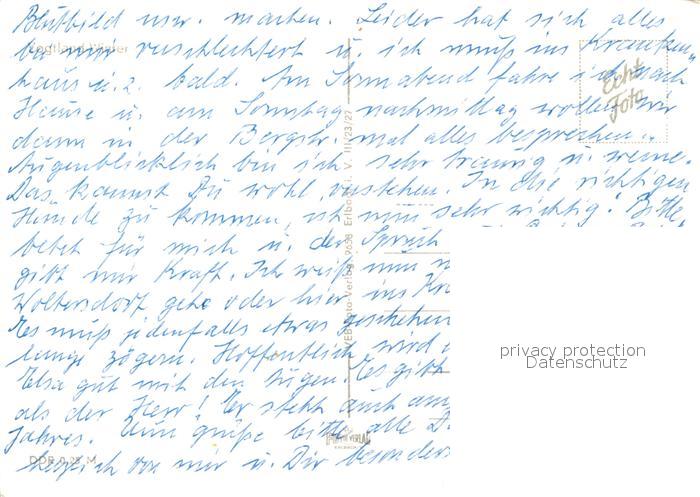 Blutbild usw. machen. Leider hat sich alles
bei mir verschlechtert u. ich muß ins Kranken-
haus u. z. bald. Am Sonnabend fahre ich nach
Hause u. am Sonntag nachmittag wollen wir
dann in der Bergstr. mal alles besprechen.
Augenblicklich bin ich sehr traurig u. weine.
Das kannst Du wohl verstehen. In die richtigen
Hände zu kommen, ist nun sehr wichtig! Bitte
betet für mich u. der Spruch
gibt mir Kraft. Ich weiß nun
Woltersdorf gehe oder hier ins Kr
Es muß jedenfalls etwas geschehen
lange zögern. Hoffentlich wird
Elsa gut mit den Augen. Es gibt
als der Herr! Er steht auch am
Jahres. Nun grüße bitte alle
herzlich von mir u. Dir besonders
Echt
Foto
VEB Foto-Verlag, 9658 Erlbach
V III/23/27
DDR 0,25 M
privacy protection
Datenschutz